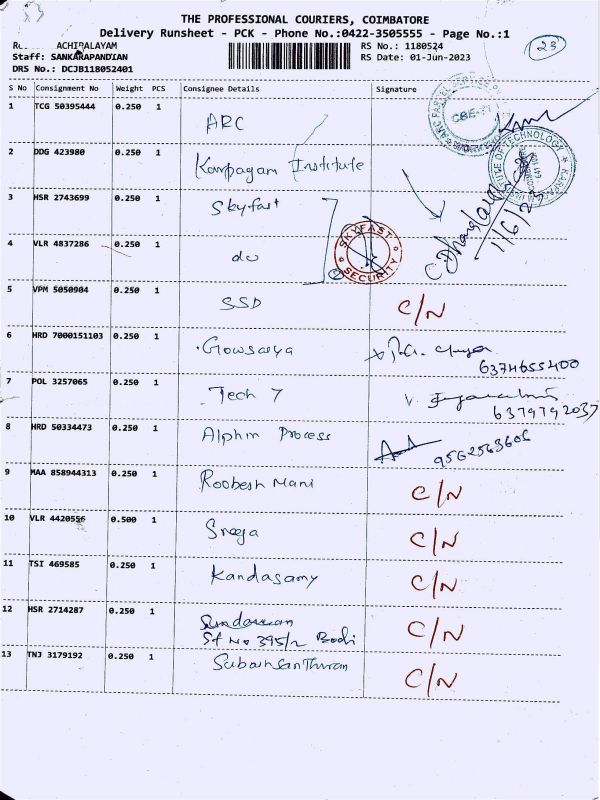 THE PROFESSIONAL COURIERS, COIMBATORE
Delivery Runsheet - PCK - Phone No.:0422-3505555 - Page No.:1
ACHIPALAYAM RS No.: 1180524 23
Staff: SANKARAPANDIAN RS Date: 01-Jun-2023
DRS No.: DCJB118052401
S No Consignment No Weight PCS Consignee Details Signature
1 TCG 50395444 0.250 1 ARC
2 DDG 423980 0.250 1 Karpagam Institute
3 HSR 2743699 0.250 1 Skyfast
1/6/23
4 VLR 4837286 0.250 1 do SKYFAST SECURITY
5 VPM 5050904 0.250 1 SSD C/N
6 HRD 7000151103 0.250 1 Gowsalya
6374655400
7 POL 3257065 0.250 1 Tech 7
6379792037
8 HRD 50334473 0.250 1 Alphm Process 9562563606
9 MAA 858944313 0.250 1 Roobesh Mani C/N
10 VLR 4420556 0.500 1 Sreeja C/N
11 TSI 469585 0.250 1 Kandasamy C/N
12 HSR 2714287 0.250 1 C/N
Sf No 395/2 Bodi
13 TNJ 3179192 0.250 1 C/N